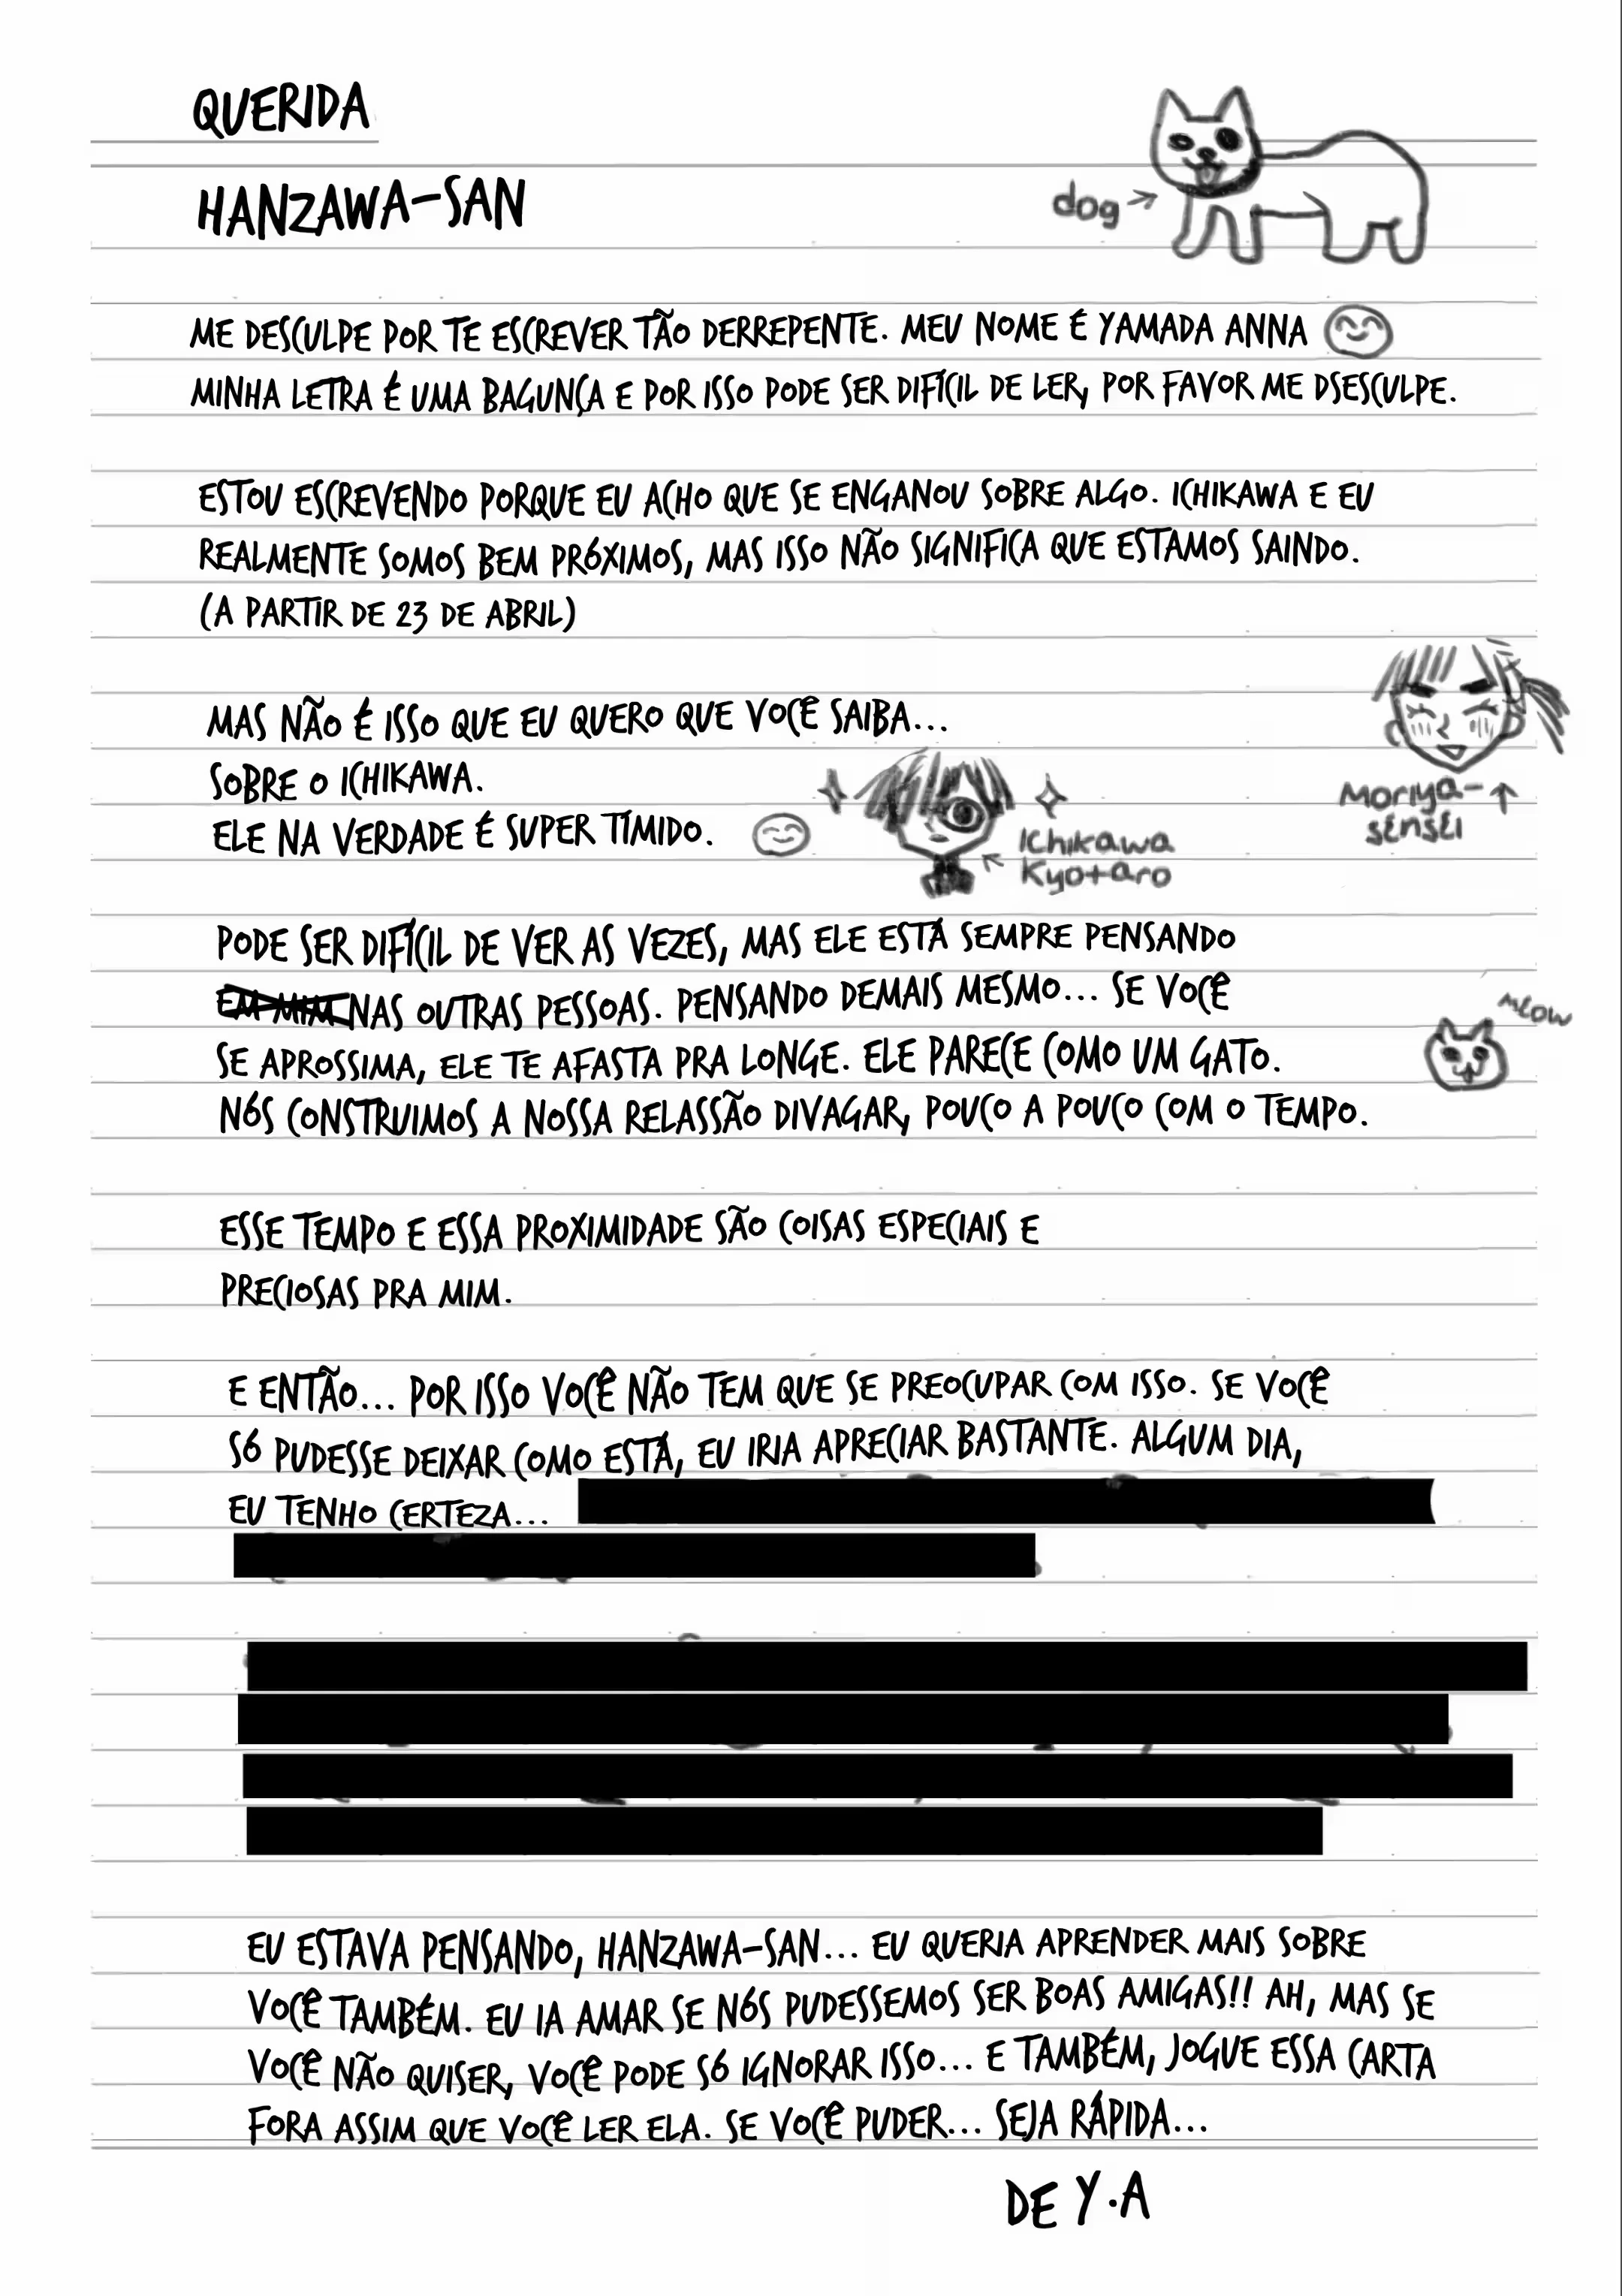 QUERIDA
HANZAWA-SAN
dog
ME DESCULPE POR TE ESCREVER TÃO DERREPENTE. MEU NOME É YAMADA ANNA
MINHA LETRA É UMA BAGUNÇA E POR ISSO PODE SER DIFÍCIL DE LER, POR FAVOR ME DSESCULPE.
ESTOU ESCREVENDO PORQUE EU ACHO QUE SE ENGANOU SOBRE ALGO. ICHIKAWA E EU
REALMENTE SOMOS BEM PRÓXIMOS, MAS ISSO NÃO SIGNIFICA QUE ESTAMOS SAINDO.
(A PARTIR DE 23 DE ABRIL)
MAS NÃO É ISSO QUE EU QUERO QUE VOCÊ SAIBA...
SOBRE O ICHIKAWA.
ELE NA VERDADE É SUPER TÍMIDO.
Ichikawa
Kyotaro
Moriya-
sensei
PODE SER DIFÍCIL DE VER AS VEZES, MAS ELE ESTÁ SEMPRE PENSANDO
EM MIM NAS OUTRAS PESSOAS. PENSANDO DEMAIS MESMO... SE VOCÊ
SE APROSSIMA, ELE TE AFASTA PRA LONGE. ELE PARECE COMO UM GATO.
meow
NÓS CONSTRUIMOS A NOSSA RELASSÃO DIVAGAR, POUCO A POUCO COM O TEMPO.
ESSE TEMPO E ESSA PROXIMIDADE SÃO COISAS ESPECIAIS E
PRECIOSAS PRA MIM.
E ENTÃO... POR ISSO VOCÊ NÃO TEM QUE SE PREOCUPAR COM ISSO. SE VOCÊ
SÓ PUDESSE DEIXAR COMO ESTÁ, EU IRIA APRECIAR BASTANTE. ALGUM DIA,
EU TENHO CERTEZA...
EU ESTAVA PENSANDO, HANZAWA-SAN... EU QUERIA APRENDER MAIS SOBRE
VOCÊ TAMBÉM. EU IA AMAR SE NÓS PUDESSEMOS SER BOAS AMIGAS!! AH, MAS SE
VOCÊ NÃO QUISER, VOCÊ PODE SÓ IGNORAR ISSO... E TAMBÉM, JOGUE ESSA CARTA
FORA ASSIM QUE VOCÊ LER ELA. SE VOCÊ PUDER... SEJA RÁPIDA...
DE Y.A